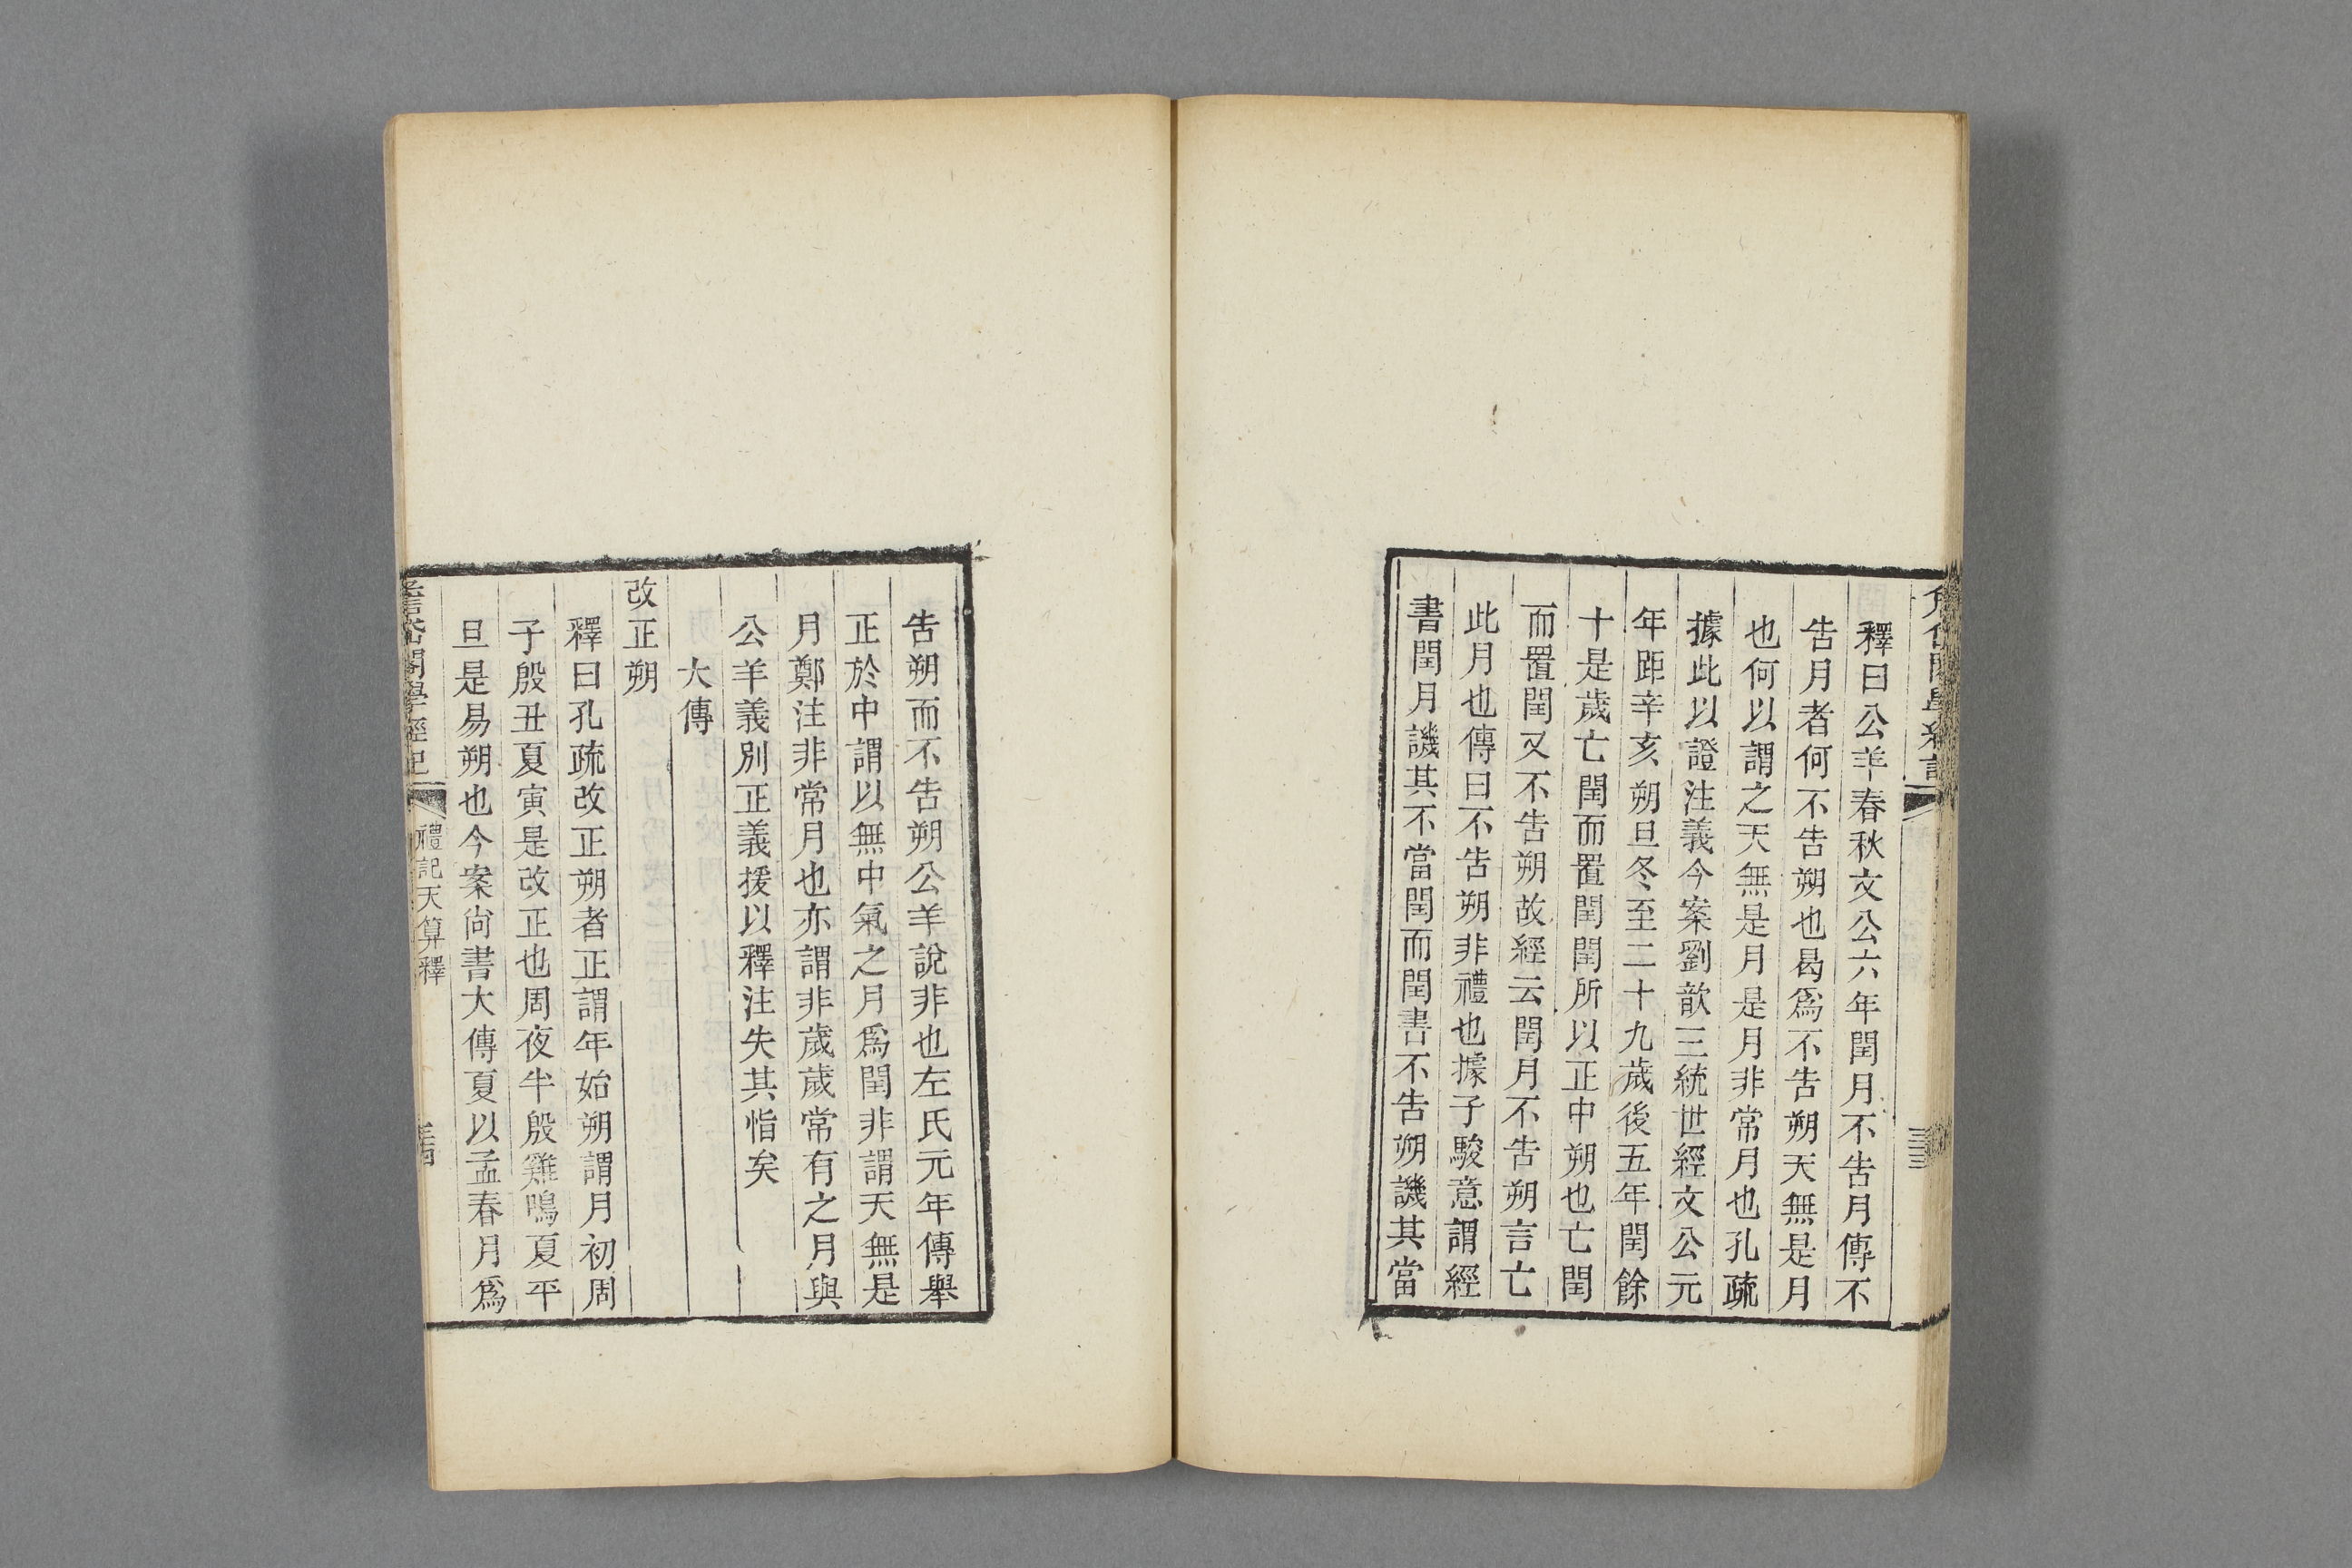 釋曰公羊春秋文公六年閏月不告月傳不
告月者何不告朔也曷爲不告朔天無是月
也何以謂之天無是月是月非常月也孔疏
據此以證注義今案劉歆三統世經文公元
年距辛亥朔旦冬至二十九歲後五年閏餘
十是歲亡閏而置閏閏所以正中朔也亡閏
而置閏又不告朔故經云閏月不告朔言亡
此月也傳曰不告朔非禮也據子駿意謂經
書閏月譏其不當閏而閏書不告朔譏其當
告朔而不告朔公羊說非也左氏元年傳舉
正於中謂以無中氣之月爲閏非謂天無是
月鄭注非常月也亦謂非歲歲常有之月與
公羊義別正義援以釋注失其恉矣
大傳
改正朔
釋曰孔疏改正朔者正謂年始朔謂月初周
子殷丑夏寅是改正也周夜半殷雞鳴夏平
旦是易朔也今案尚書大傳夏以孟春月爲
禮記天算釋